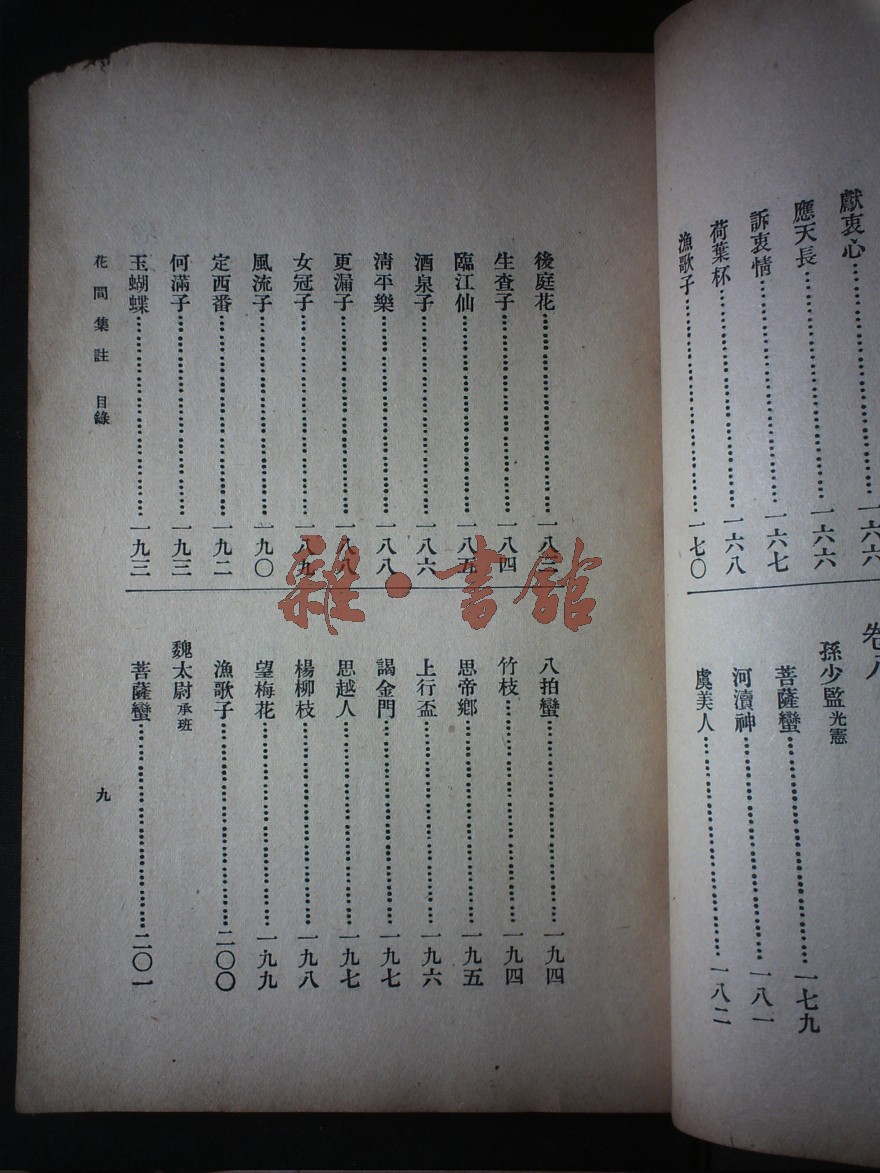 獻衷心……一六六
應天長……一六六
訴衷情……一六七
荷葉杯……一六八
漁歌子……一七〇
卷八
孫少監光憲
菩薩蠻……一七九
河瀆神……一八一
虞美人……一八二
後庭花……一八三
生查子……一八四
臨江仙……一八五
酒泉子……一八六
清平樂……一八八
更漏子……一八八
女冠子……一八九
風流子……一九〇
定西番……一九二
何滿子……一九三
玉蝴蝶……一九三
八拍蠻……一九四
竹枝……一九四
思帝鄉……一九五
上行盃……一九六
謁金門……一九七
思越人……一九七
楊柳枝……一九八
望梅花……一九九
漁歌子……二〇〇
魏太尉承班
菩薩蠻……二〇一
花間集註 目錄
九
雜·書館